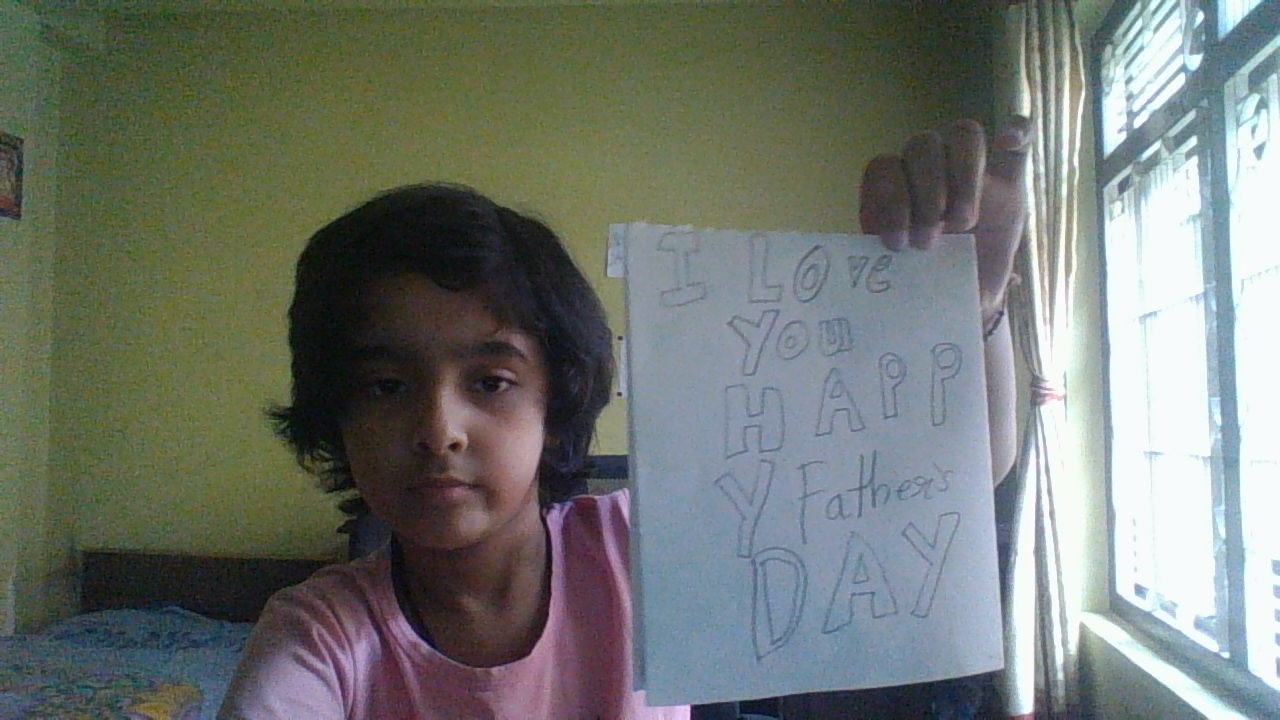 I LOve
You
HAPP
Y Father's
DAY